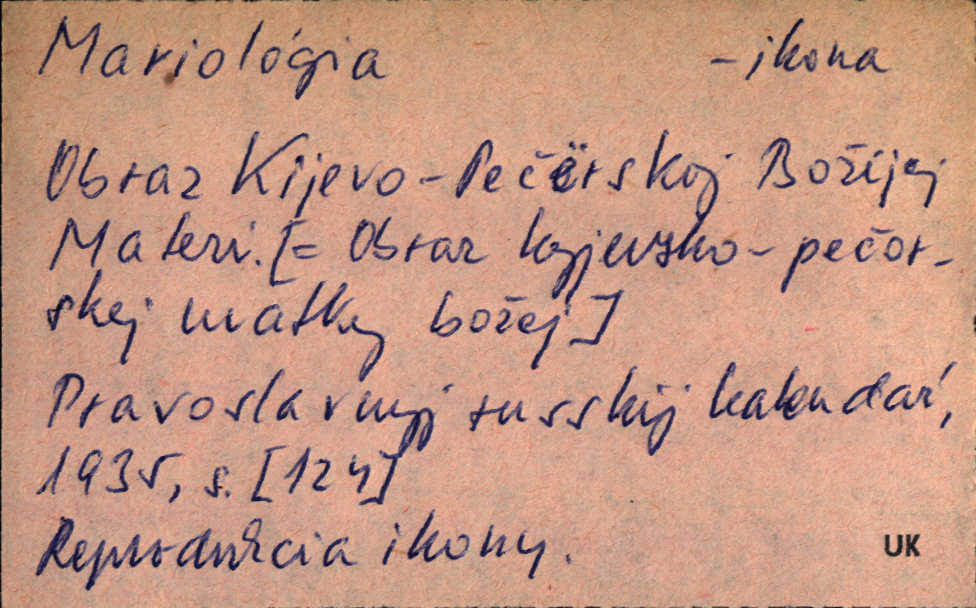 Mariológia - ikona
Obraz Kijevo-Pečërskoj Božijej
Materi. [= Obraz kyjevsko-pečor-
skej matky božej]
Pravoslavnyj russkij kalendar',
1935, s. [124]
Reprodukcia ikony.
UK